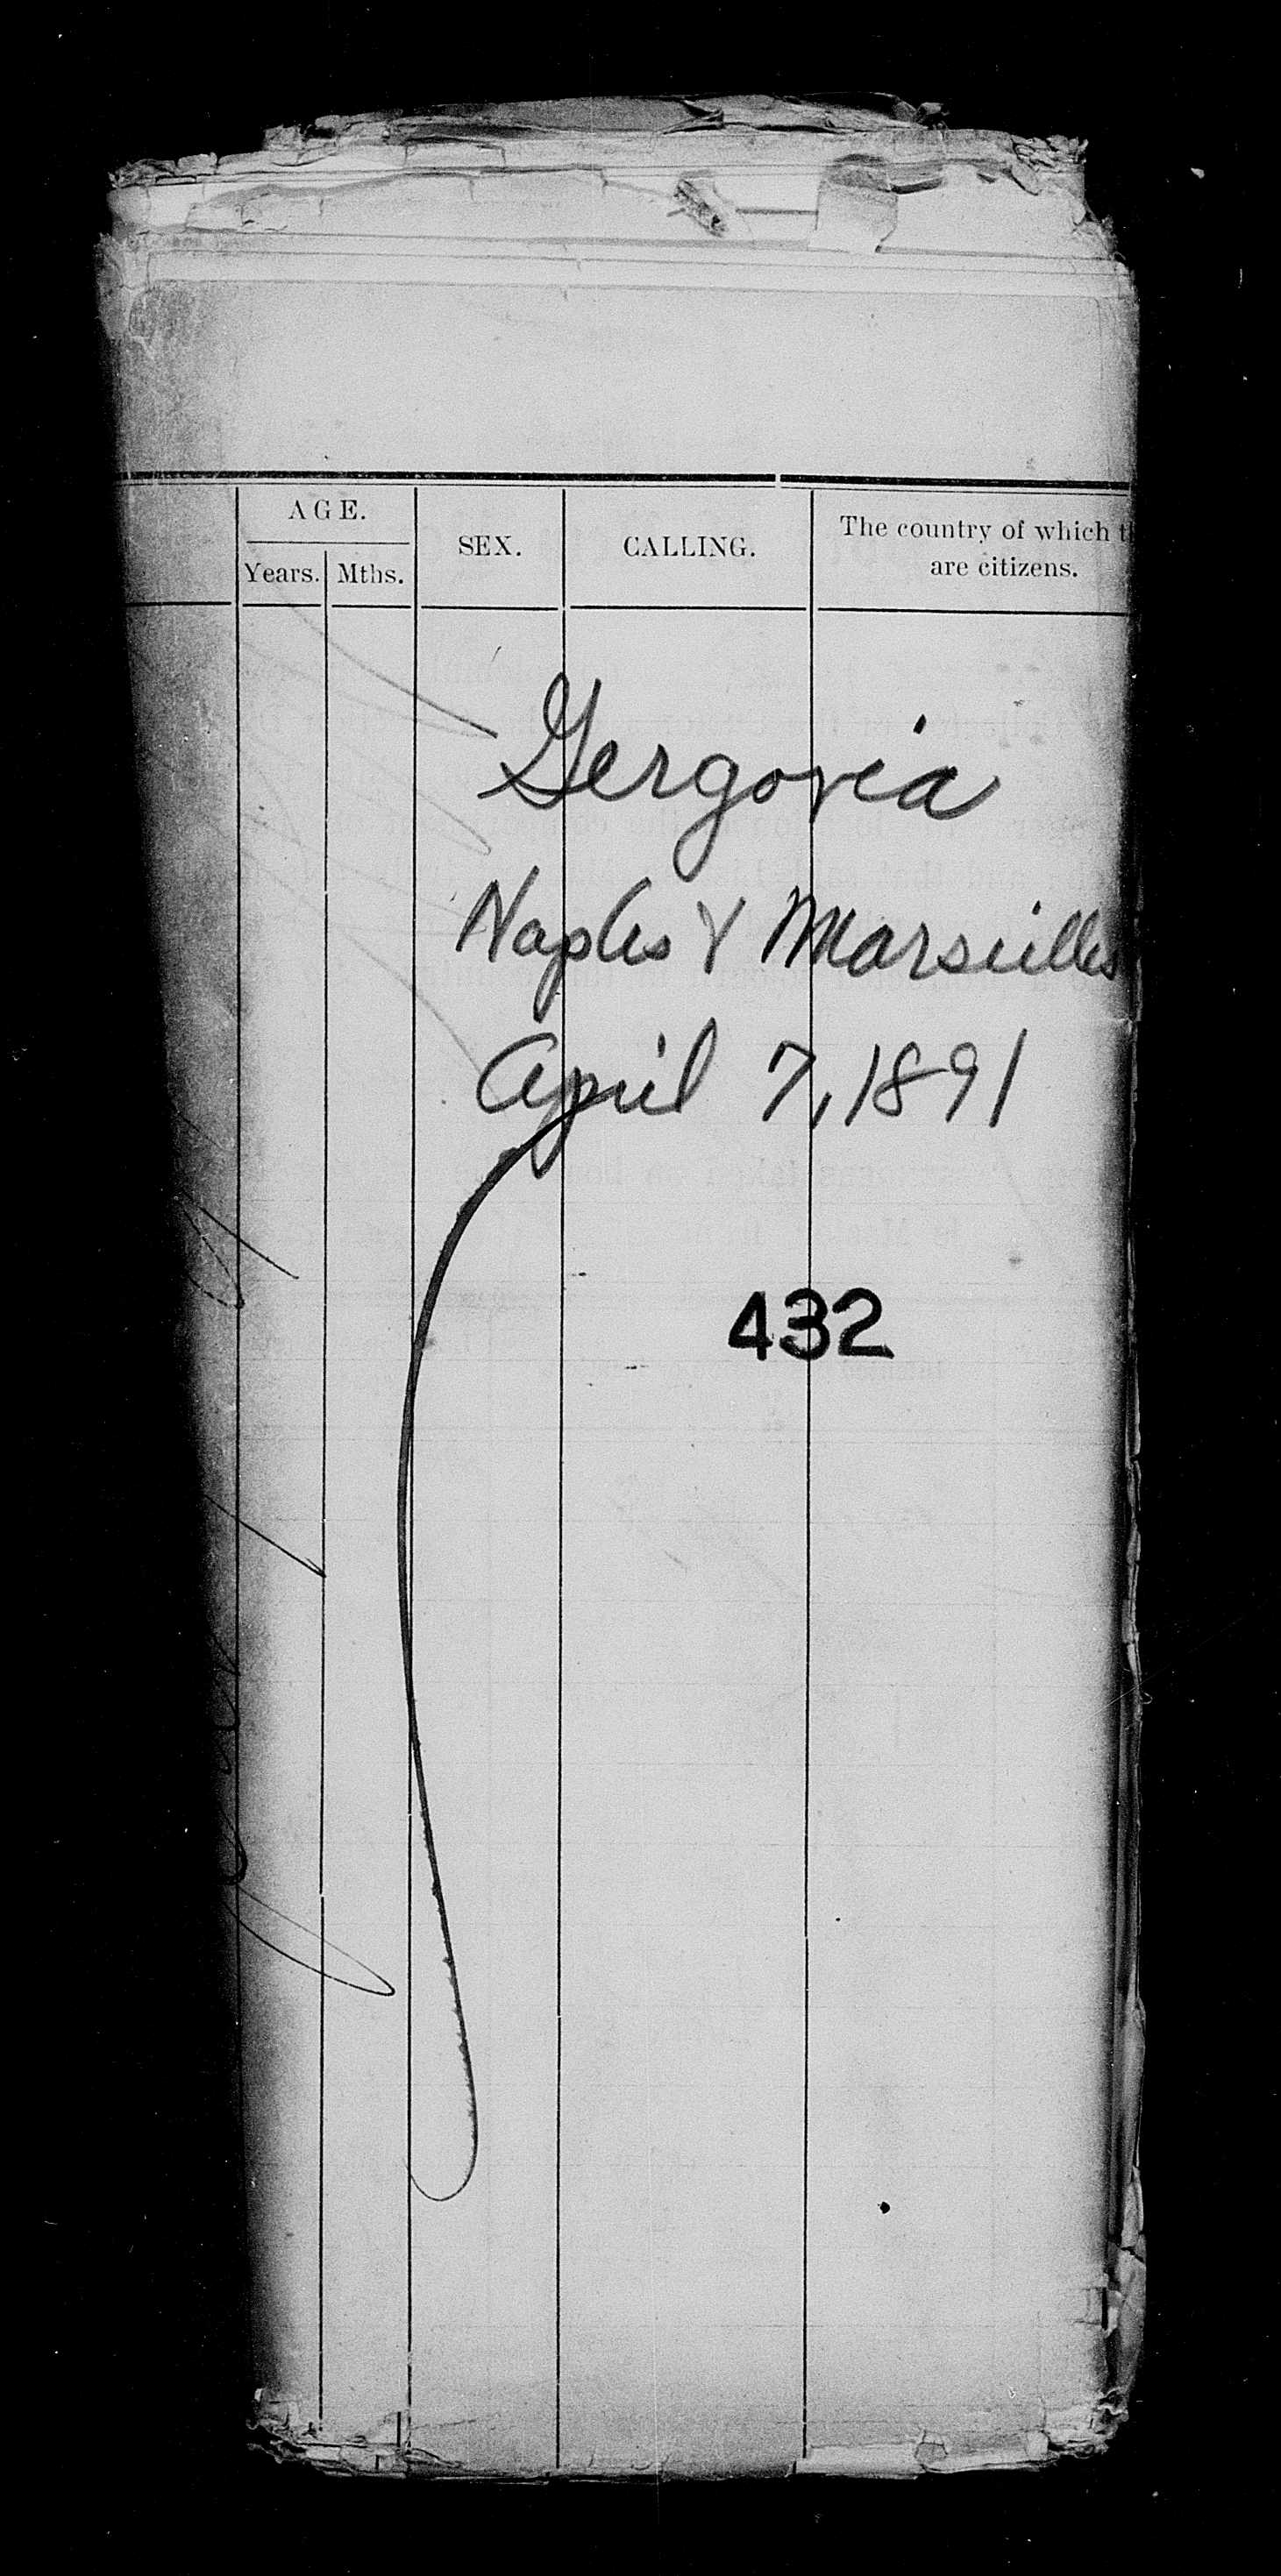 AGE.
Years. Mths.
SEX.
CALLING.
The country of which t
are citizens.
Gergovia
Naples & Marseilles
April 7, 1891
432